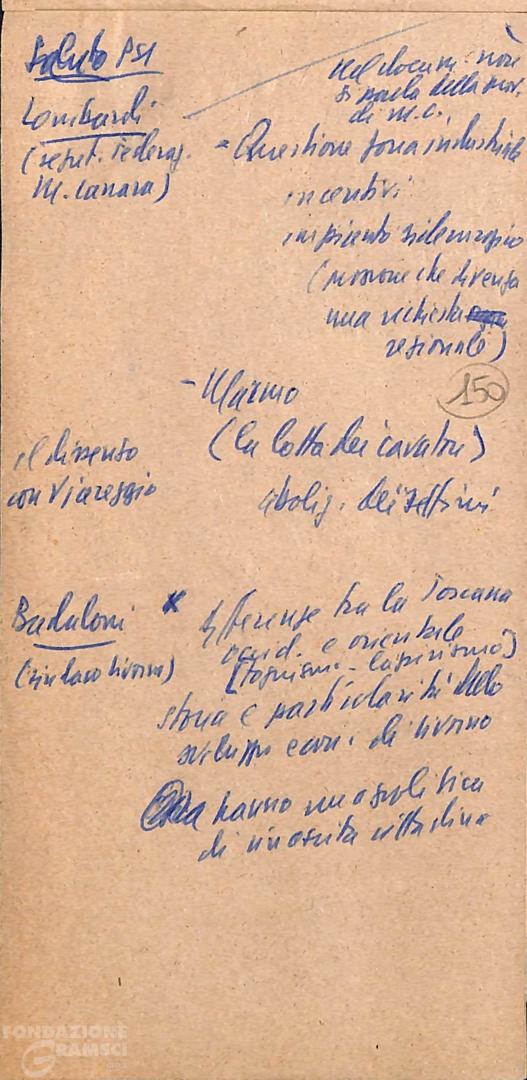 Saluto PSI
nel docum. non
si parla della prov.
di M.C.
Lombardi
(segret. Federaz.
M. Carrara)
- Questione zona industriale
incentivi
impianto siderurgico
(mozione che divenga
una richiesta
regionale)
150
- Marmo
(la lotta dei cavatori)
aboliz. dei settimi
il dissenso
con Viareggio
Badaloni
(sindaco Livorno)
x differenze tra la Toscana
occid. e orientale
storia e particolarità dello
sviluppo econ. di Livorno
Ora hanno una politica
di rinascita cittadina
FONDAZIONE
GRAMSCI